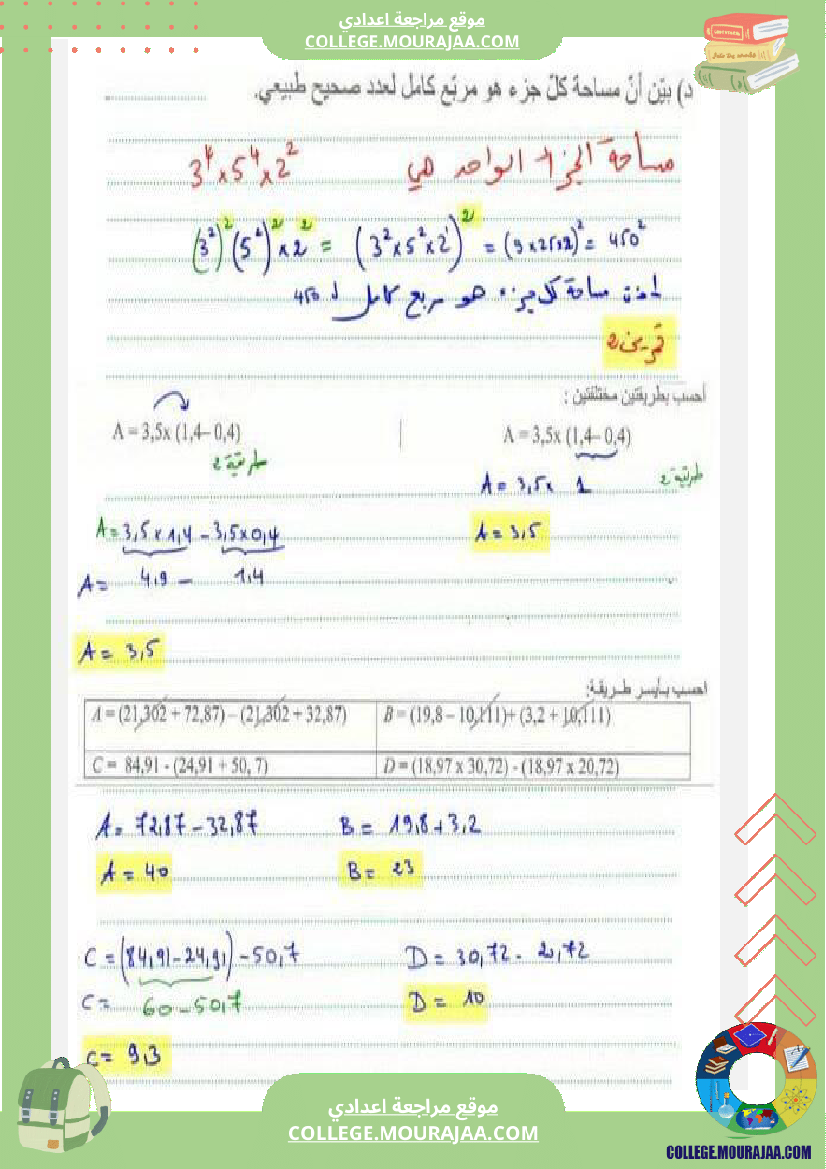 موقع مراجعة اعدادي
COLLEGE.MOURAJAA.COM
د) بيّن أنّ مساحة كلّ جزء هو مربّع كامل لعدد صحيح طبيعي.
مساحة الجزء الواحد هي 3⁴×5⁴×2²
(3²)²(5²)²×2² = (3²×5²×2)² = (9×25×2)² = 450²
إذن مساحة كل جزء هو مربع كامل لـ 450
تمرين 2
أحسب بطريقتين مختلفتين :
A = 3,5x (1,4– 0,4)
طريقة 2
A = 3,5 x 1,4 – 3,5 x 0,4
A = 4,9 – 1,4
A = 3,5
A = 3,5x (1,4– 0,4)
طريقة 2
A = 3,5x 1
A = 3,5
احسب بأيسر طريقة:
A = (21,302 + 72,87) – (21,302 + 32,87)
B = (19,8 – 10,111)+ (3,2 + 10,111)
C = 84,91 - (24,91 + 50, 7)
D = (18,97 x 30,72) - (18,97 x 20,72)
A = 72,87 – 32,87
B = 19,8 + 3,2
A = 40
B = 23
C = (84,91 – 24,91) – 50,7
D = 30,72 - 20,72
C = 60 – 50,7
D = 10
C = 9,3
موقع مراجعة اعدادي
COLLEGE.MOURAJAA.COM
COLLEGE.MOURAJAA.COM